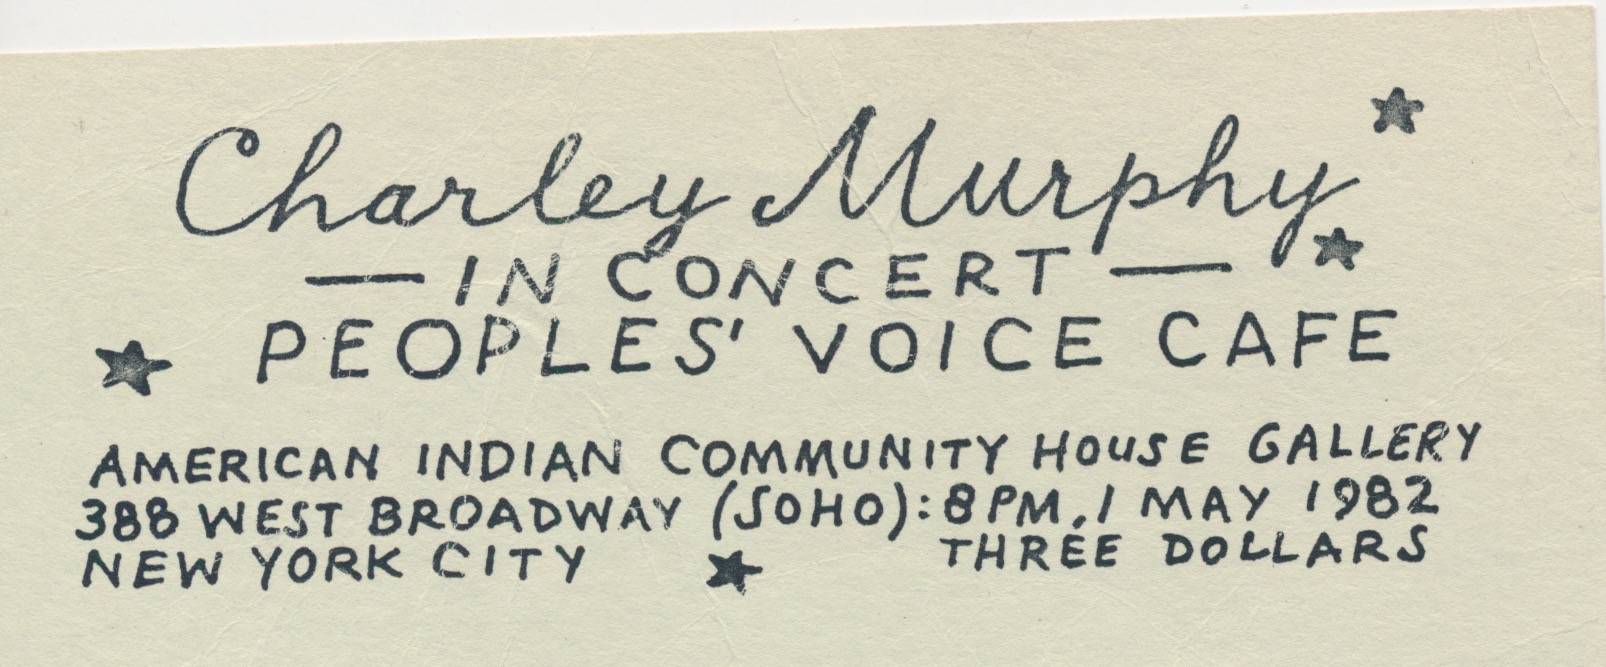 Charley Murphy
— IN CONCERT —
PEOPLES' VOICE CAFE
AMERICAN INDIAN COMMUNITY HOUSE GALLERY
388 WEST BROADWAY (SOHO): 8PM, 1 MAY 1982
NEW YORK CITY THREE DOLLARS